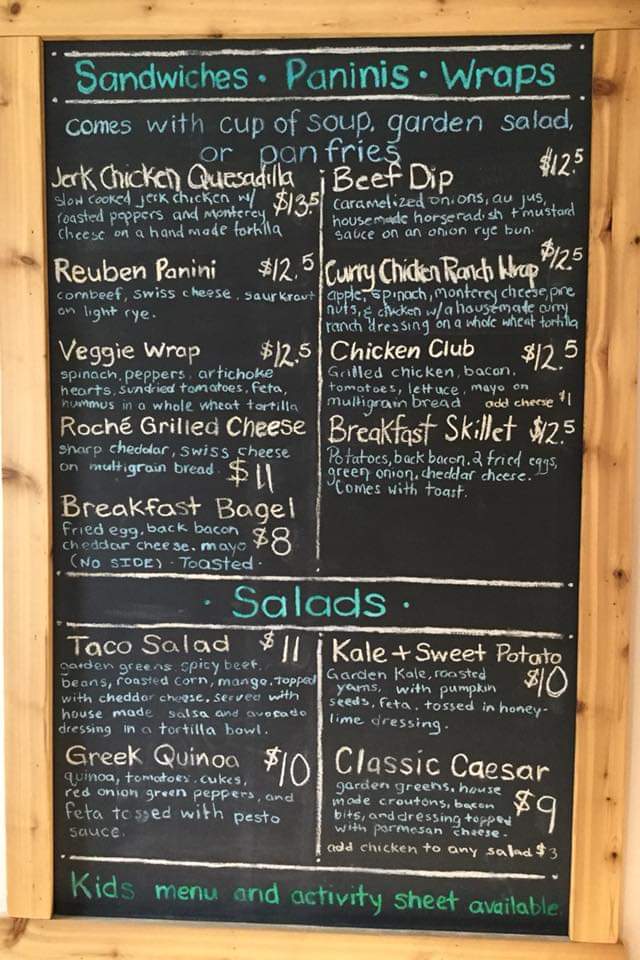 Sandwiches · Paninis · Wraps
comes with cup of soup, garden salad,
or pan fries
Jerk Chicken Quesadilla
slow cooked jerk chicken w/ $13.5
roasted peppers and monterey
cheese on a hand made tortilla
Reuben Panini $12.5
cornbeef, swiss cheese, saurkraut
on light rye.
Veggie Wrap $12.5
spinach, peppers, artichoke
hearts, sundried tomatoes, feta,
hummus in a whole wheat tortilla
Roché Grilled Cheese
sharp cheddar, swiss cheese
on multigrain bread $11
Breakfast Bagel
Fried egg, back bacon $8
cheddar cheese, mayo
(NO SIDE) · Toasted ·
Beef Dip $12.5
caramelized onions, au jus,
housemade horseradish + mustard
sauce on an onion rye bun.
Curry Chicken Ranch Wrap $12.5
apple, spinach, monterey cheese, pine
nuts, & chicken w/ a housemade curry
ranch dressing on a whole wheat tortilla
Chicken Club $12.5
Grilled chicken, bacon,
tomatoes, lettuce, mayo on
multigrain bread add cheese $1
Breakfast Skillet $12.5
Potatoes, back bacon, 2 fried eggs,
green onion, cheddar cheese.
Comes with toast.
· Salads ·
Taco Salad $11
garden greens, spicy beef,
beans, roasted corn, mango, topped
with cheddar cheese, served with
house made salsa and avocado
dressing in a tortilla bowl.
Greek Quinoa $10
quinoa, tomatoes, cukes,
red onion green peppers, and
feta tossed with pesto
sauce.
Kale + Sweet Potato
Garden Kale, roasted $10
yams, with pumpkin
seeds, feta, tossed in honey-
lime dressing.
Classic Caesar
garden greens, house
made croutons, bacon $9
bits, and dressing topped
with parmesan cheese.
add chicken to any salad $3
Kids menu and activity sheet available